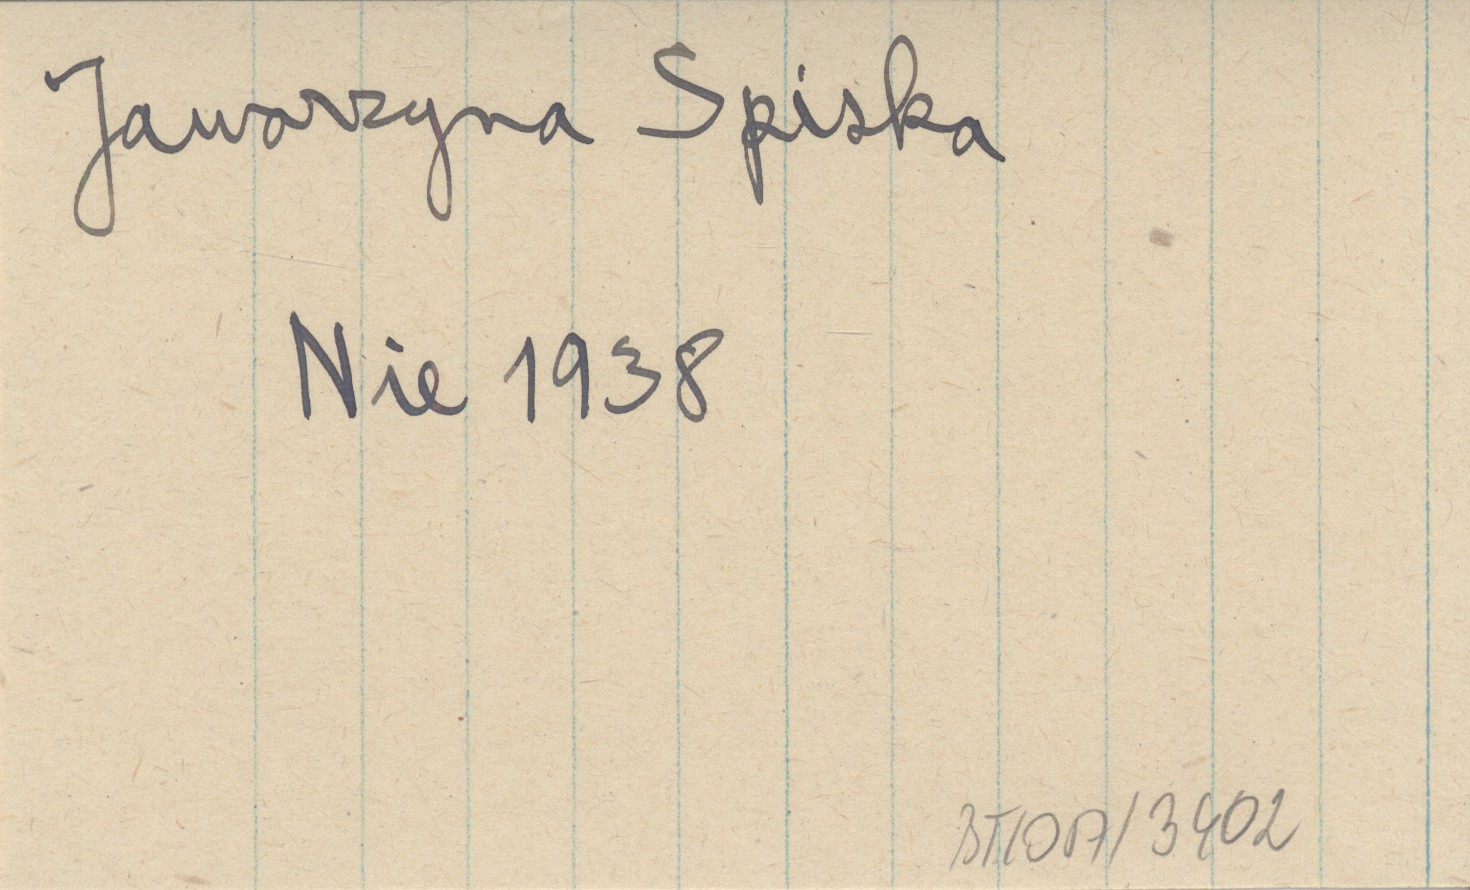 Jaworzyna Spiska
Nie 1938
3402